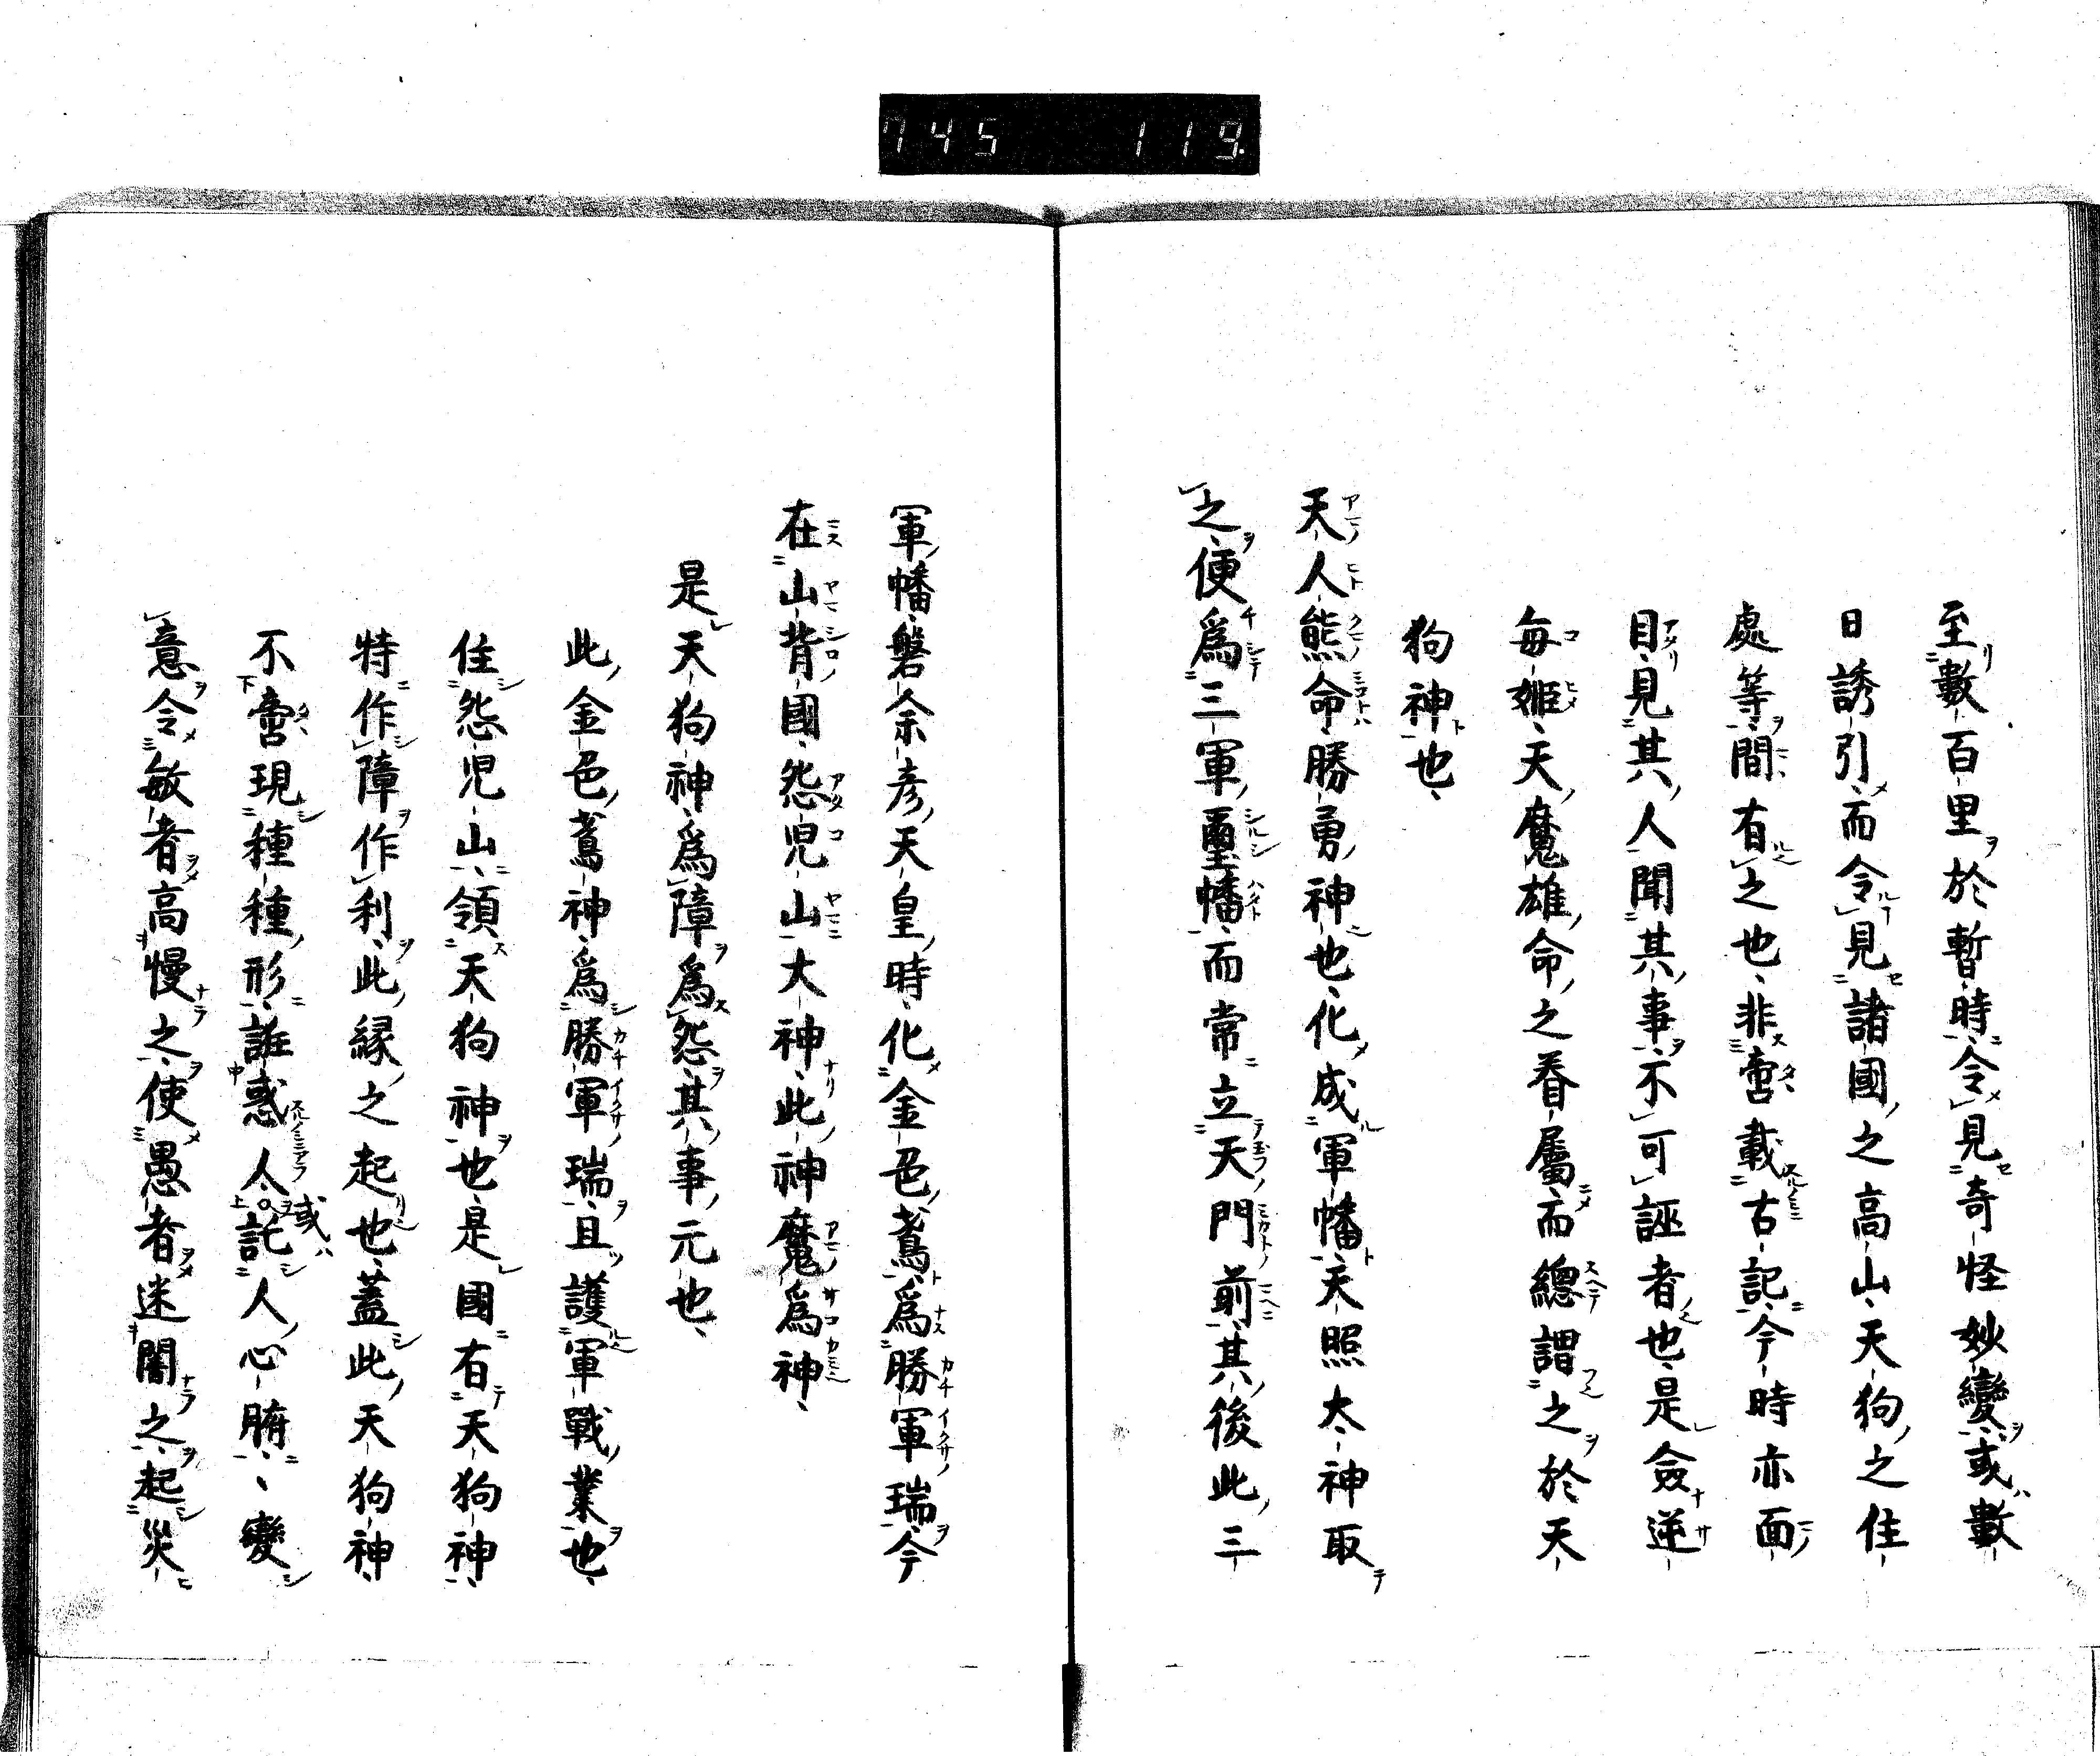 745 119
至數百里於暫時令見奇怪妙變或數
日誘引而令見諸國之高山天狗之住
處等間有之也非啻載古記今時亦面
目見其人聞其事不可誣者也是僉逆
每姬天魔雄命之眷屬而總謂之於天
狗神也
天人熊命勝勇神也化成軍幡天照大神取
之便爲三軍璽幡而常立天門前其後此三
軍幡磐余彥天皇時化金色鵄爲勝軍瑞今
在山背國怨児山大神此神魔爲神
是天狗神爲障爲怨其事元也
此金色鵄神爲勝軍瑞且護軍戰業也
住怨児山領天狗神也是國有天狗神
特作障作利此緣之起也蓋此天狗神
不啻現種種形誑惑人或託人心腑、變
意令敏者高慢之使愚者迷闇之起災